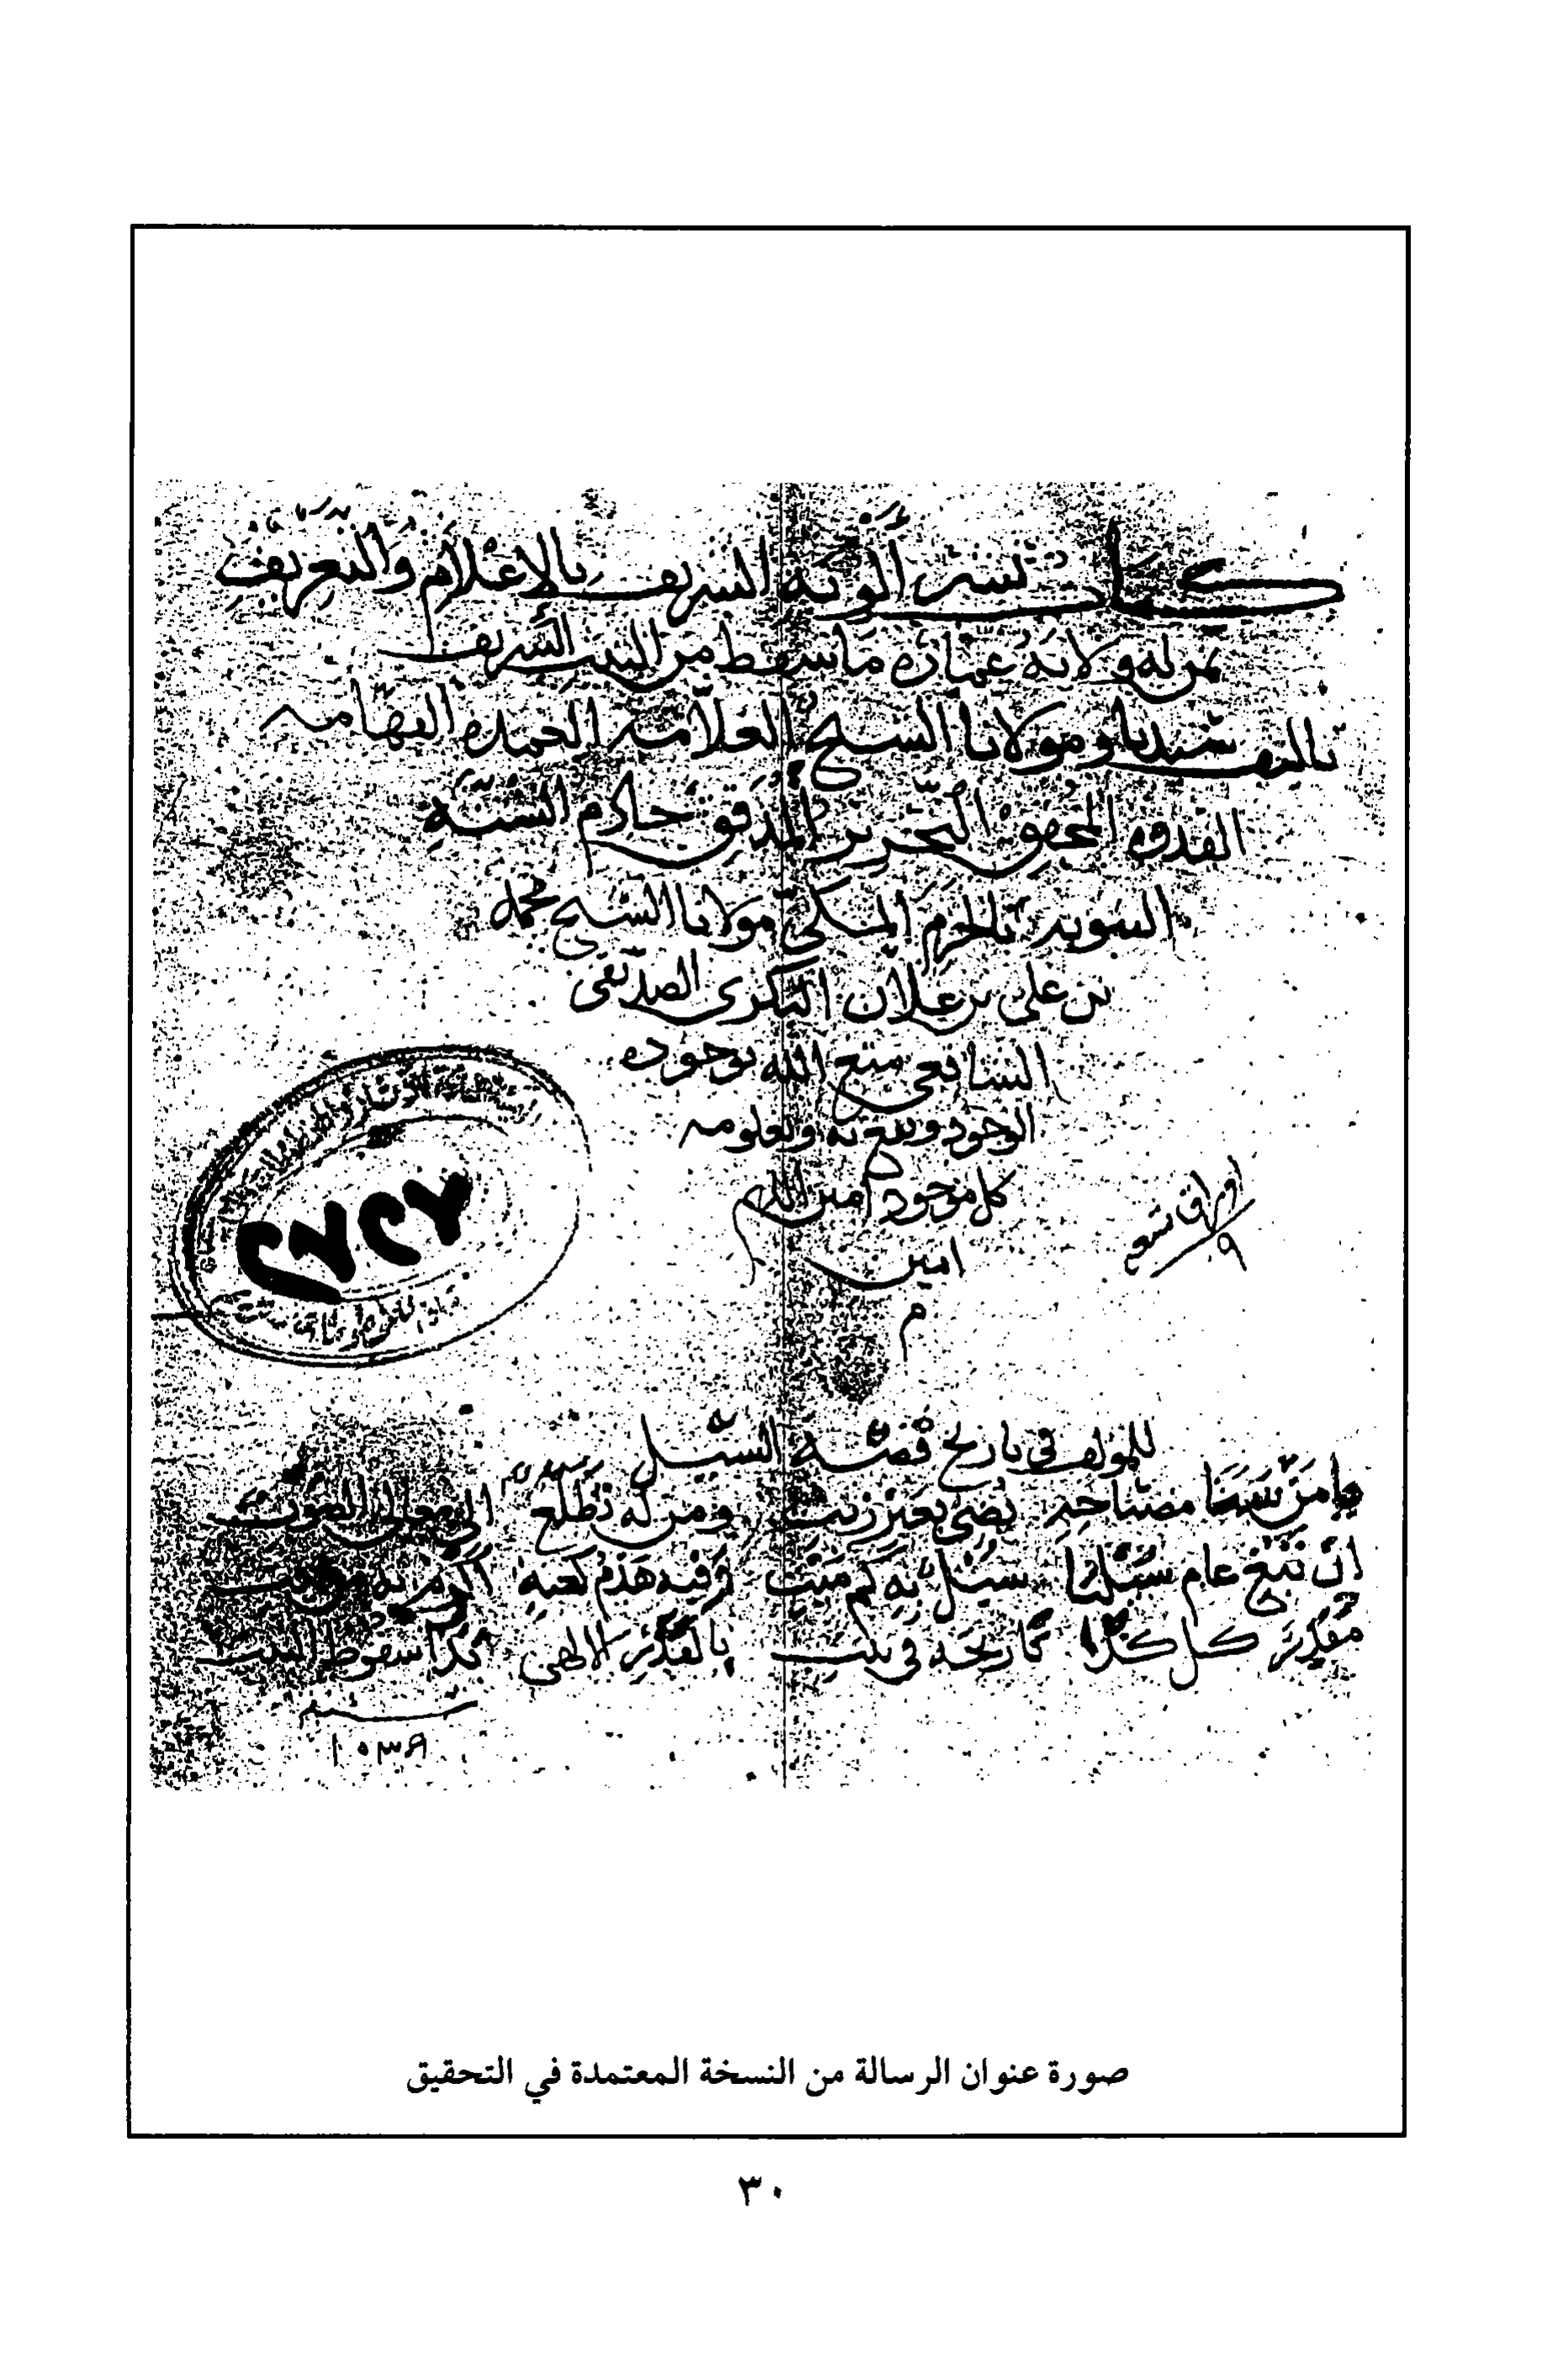 كتاب نشر ألوية التشريف بالاعلام والتعريف
بمن له ولاية عمارة ما سقط من البيت الشريف
تاليف سيدنا ومولانا الشيخ العلامة العمدة الفهامه
القدوه المحقق النحرير المدقق خادم السنة
النبويه بالحرم المكي مولانا الشيخ محمد
بن علي بن علان البكري الصديقي
الشافعي متع الله بوجوده
الوجود ونفع به وبعلومه
كل موجود امين اللهم
امين
م
اوراق تسعه
٩
للمؤلف في تاريخ قصة السيل
يا من سنا مصباحه يضئ بغير زيت ومن له تطلع الى معالي الصوت
ان تبغ عام سيلنا سيل به كم ميت وفيه هدم كعبة اكرم به من بيت
مقدر كل كذا تاريخه في بيت بالقدر الالهي كذا سقوط البيت
سنة
١٠٣٩
صورة عنوان الرسالة من النسخة المعتمدة في التحقيق
٣٠